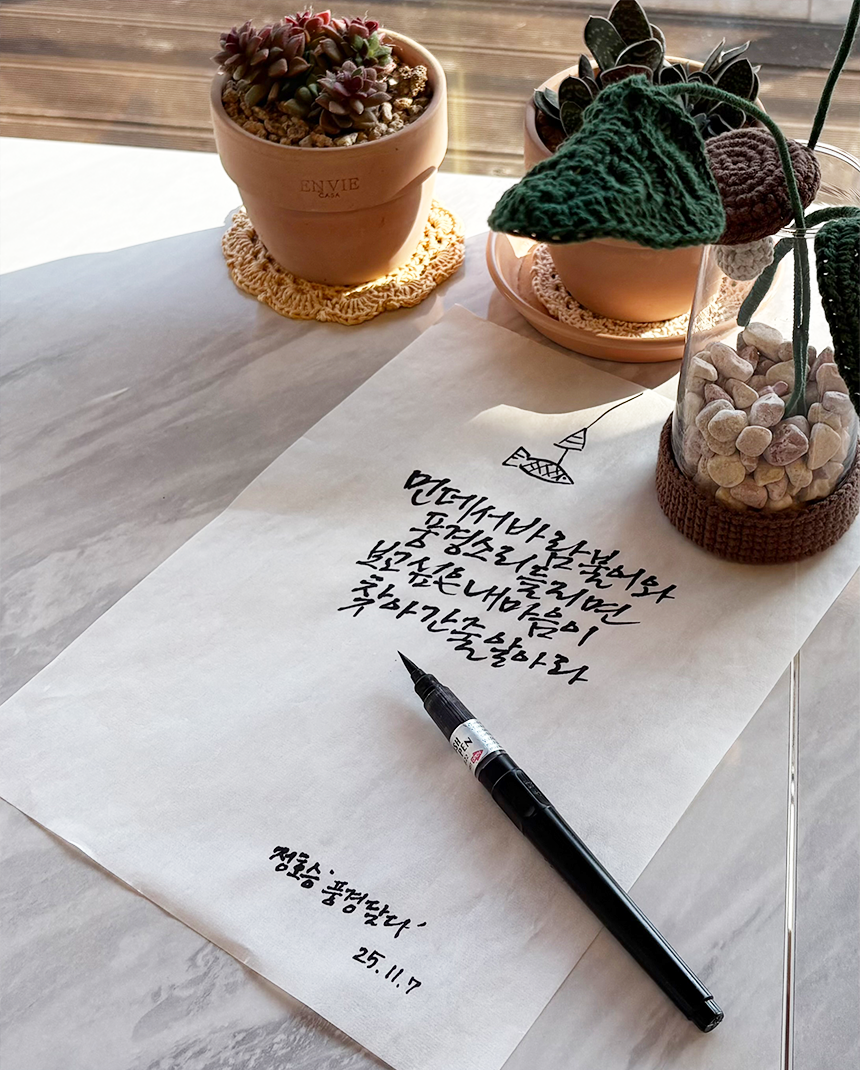 ENVIE
CASA
먼데서바람불어와
풍경소리들리면
보고싶은내마음이
찾아간줄알아라
PEN
정호승 '풍경달다'
25.11.7